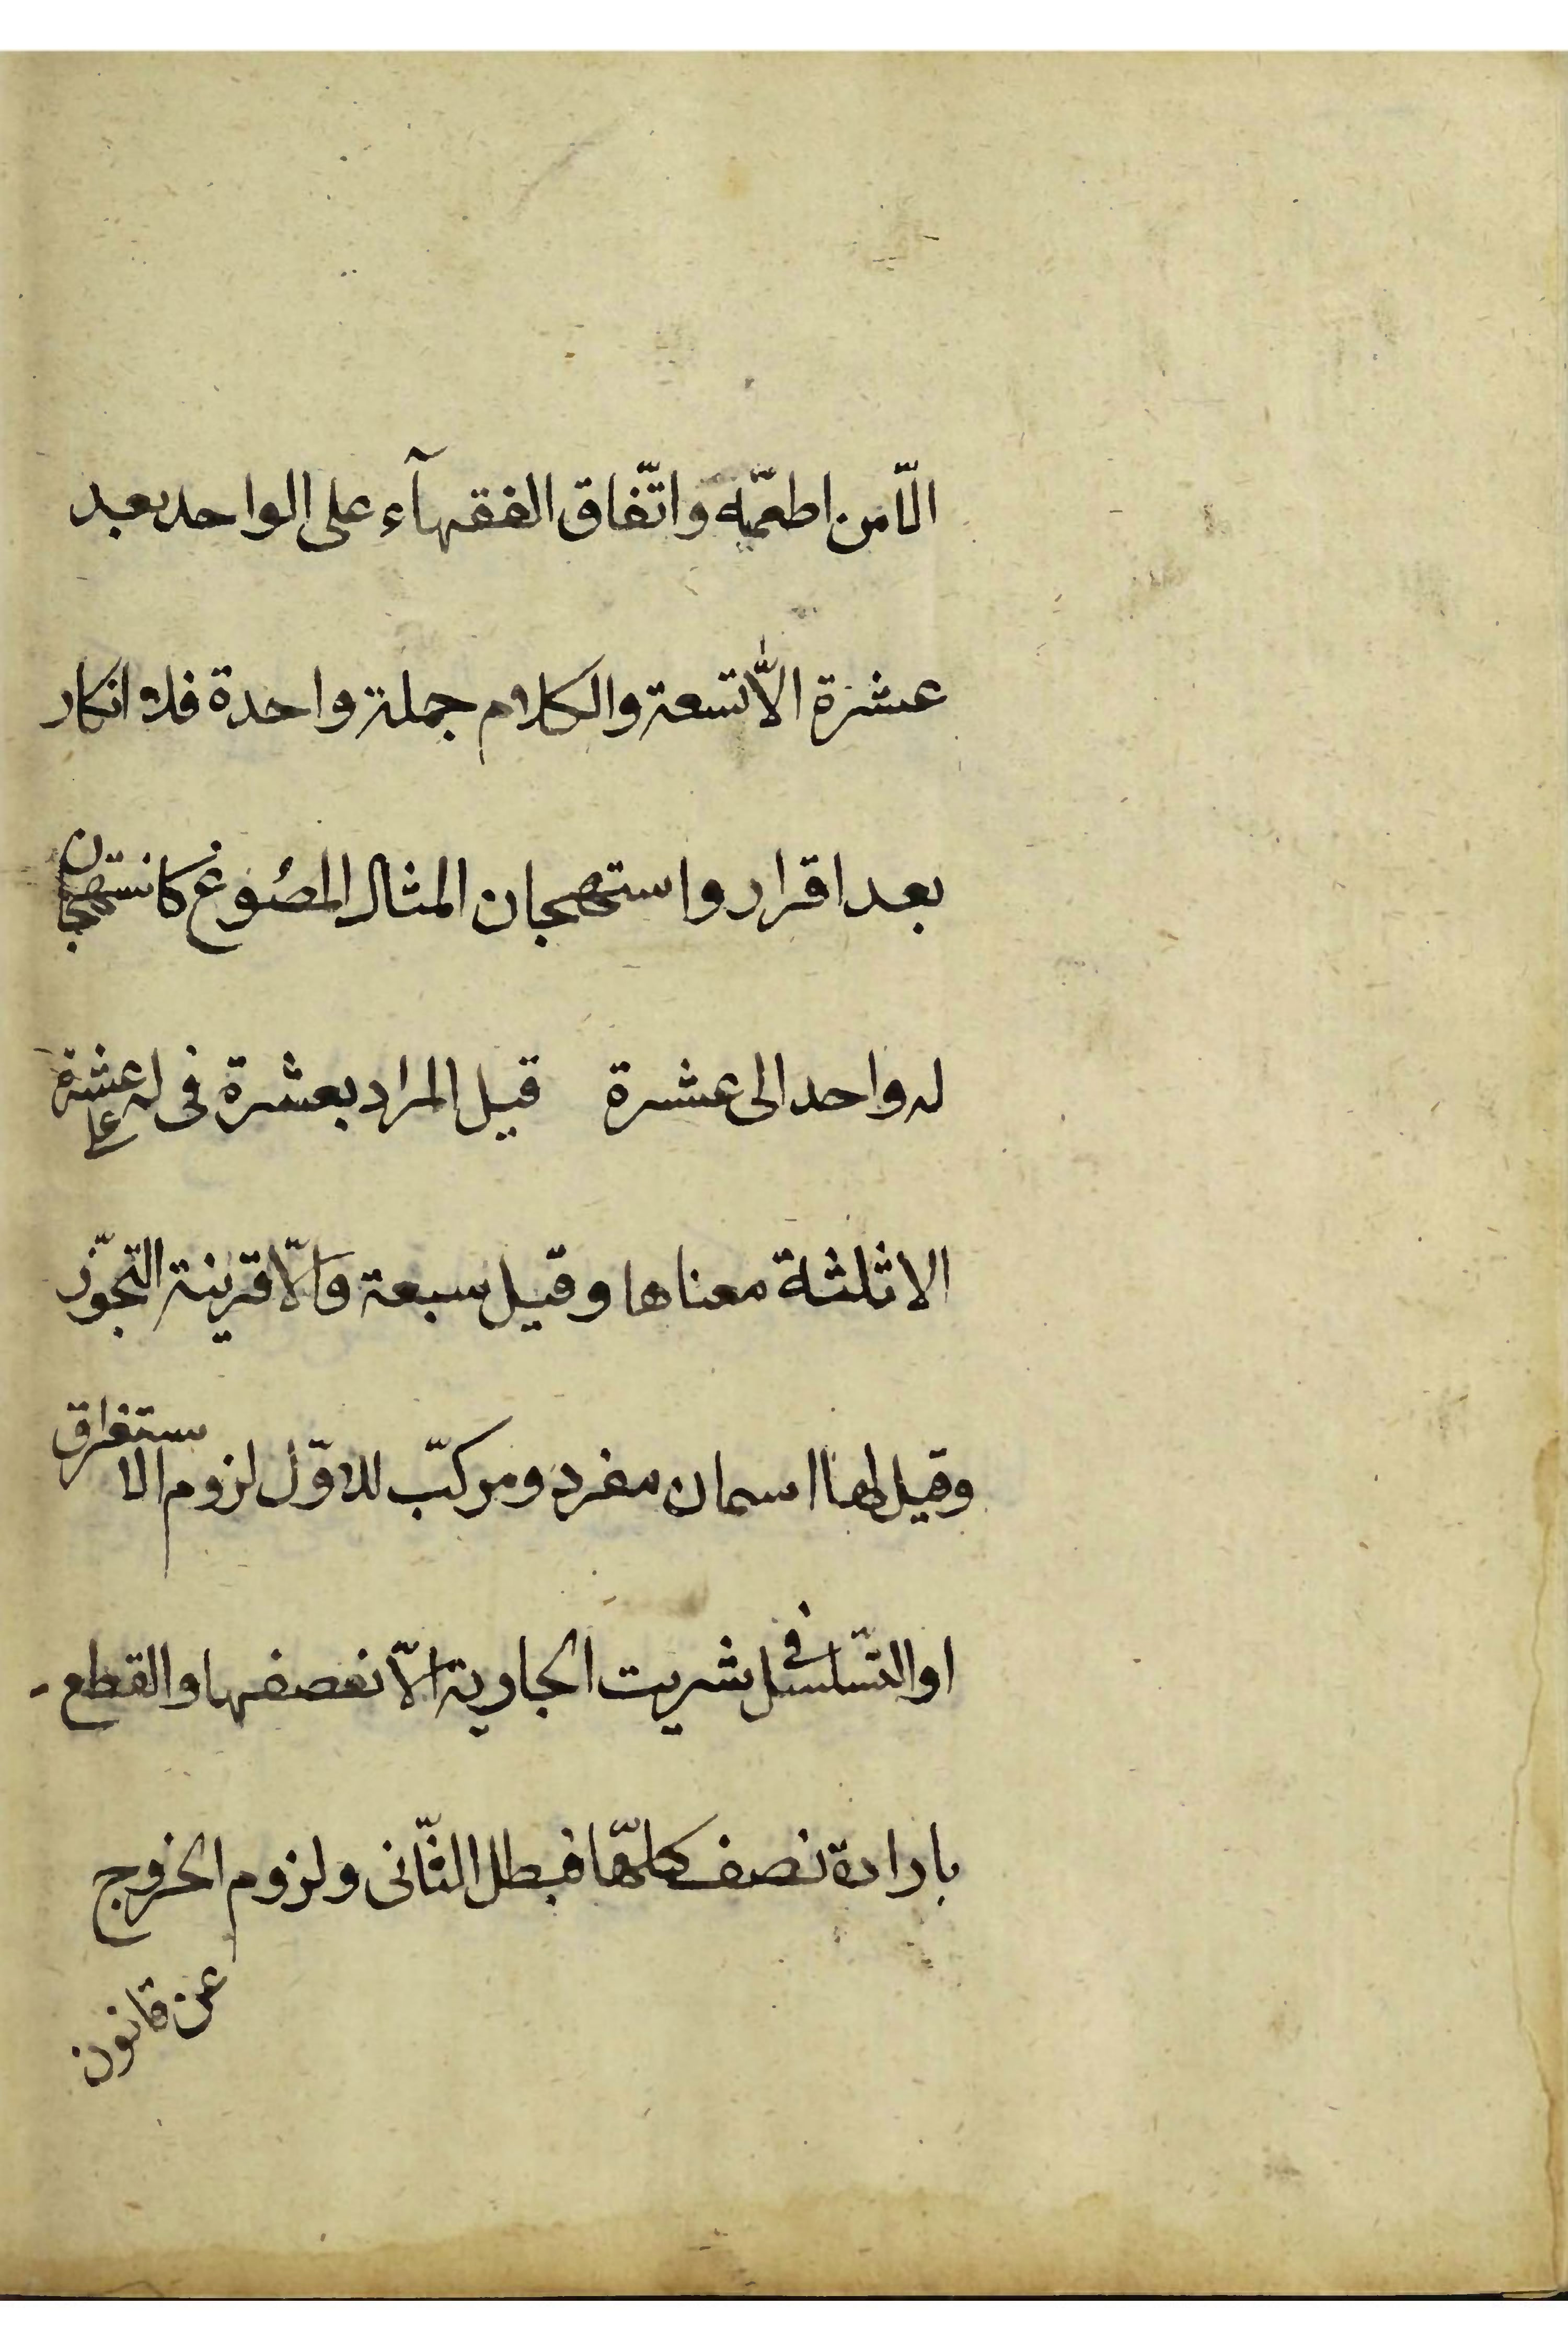 الّا من اطعمّته واتّفاق الفقهآء على الواحد بعد
عشرة الّا تسعة والكلام جملة واحدة فلا انكار
بعد اقرار واستهجان المثال المصُوغ كاستهجان
له واحد الى عشرة قيل المراد بعشرة فى له على عشرة
الا ثلثة معناها وقيل سبعة وَالّا قرينة التجّوّز
وقيل لها اسمان مفرد ومركّب للاوّل لزوم الاستغراق
او التّسلسل فى شريت الجارية الّا نصفها والقطع
بارادة نصف كلّها فبطل الثّانى ولزوم الخروج
عن قانون